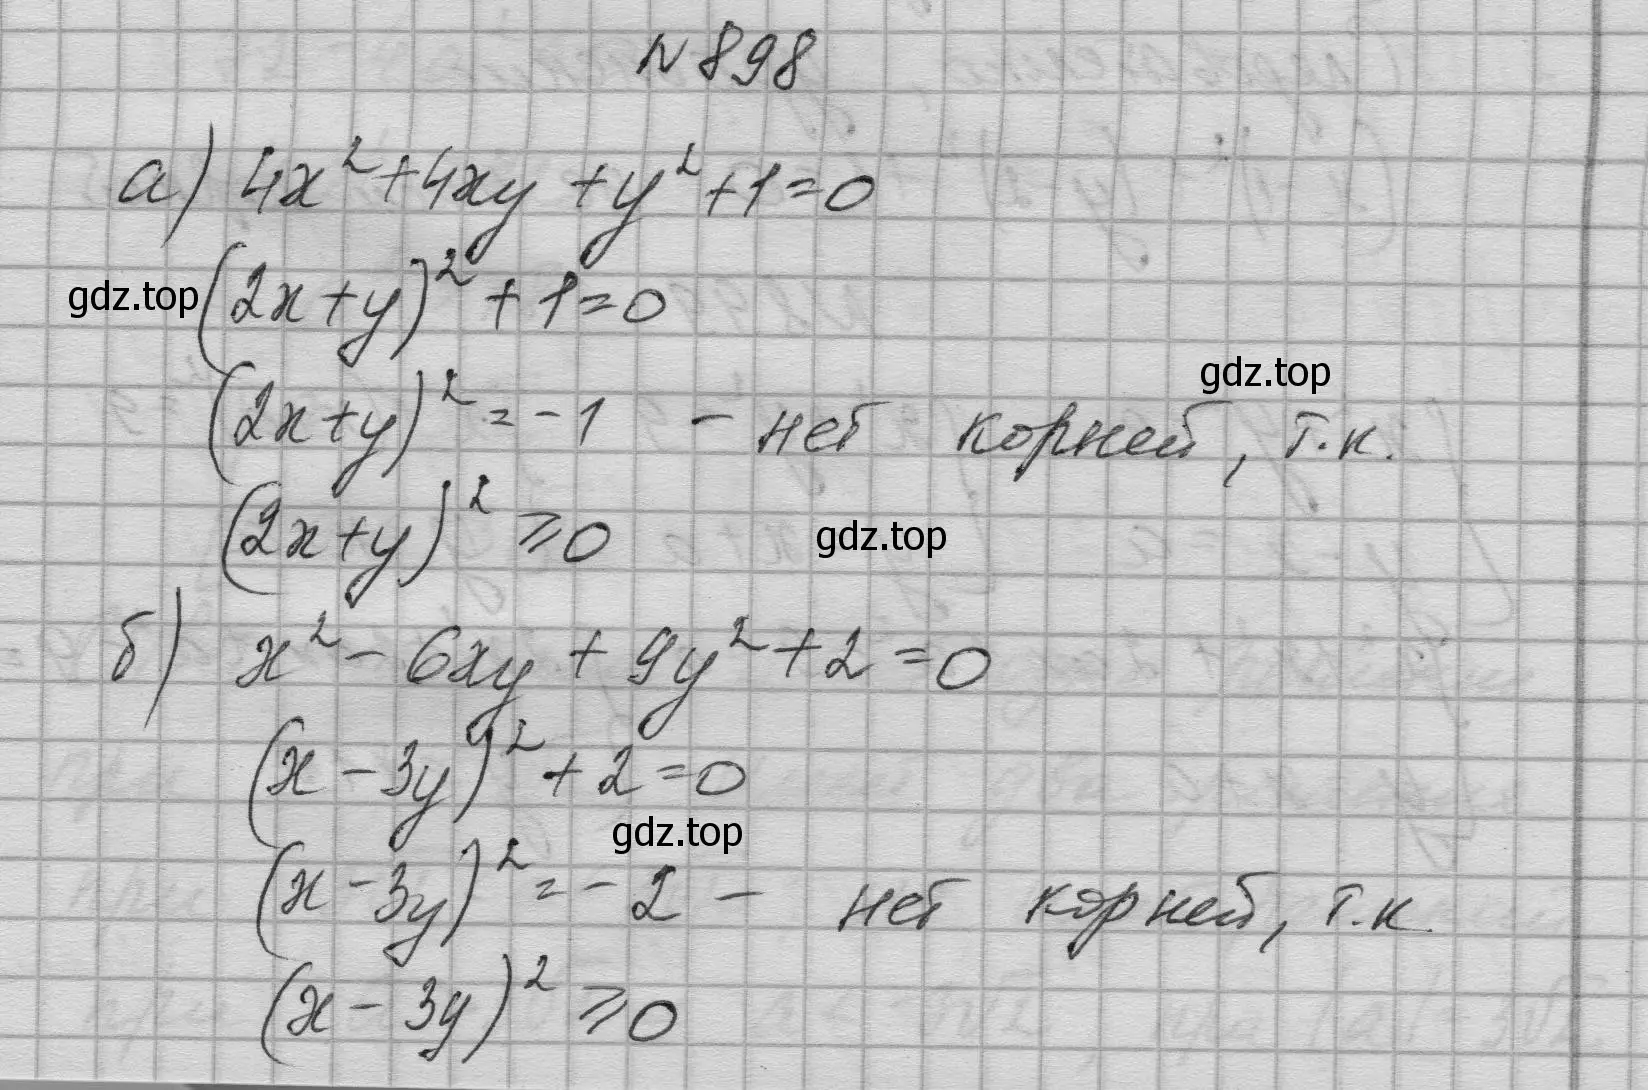 N 898
а) 4x² + 4xy + y² + 1 = 0
gdz.top (2x + y)² + 1 = 0
gdz.top
(2x + y)² = -1 - нет корней, т.к.
(2x + y)² ⩾ 0 gdz.top
б) x² - 6xy + 9y² + 2 = 0
(x - 3y)² + 2 = 0
gdz.top
(x - 3y)² = -2 - нет корней, т.к.
(x - 3y)² ⩾ 0